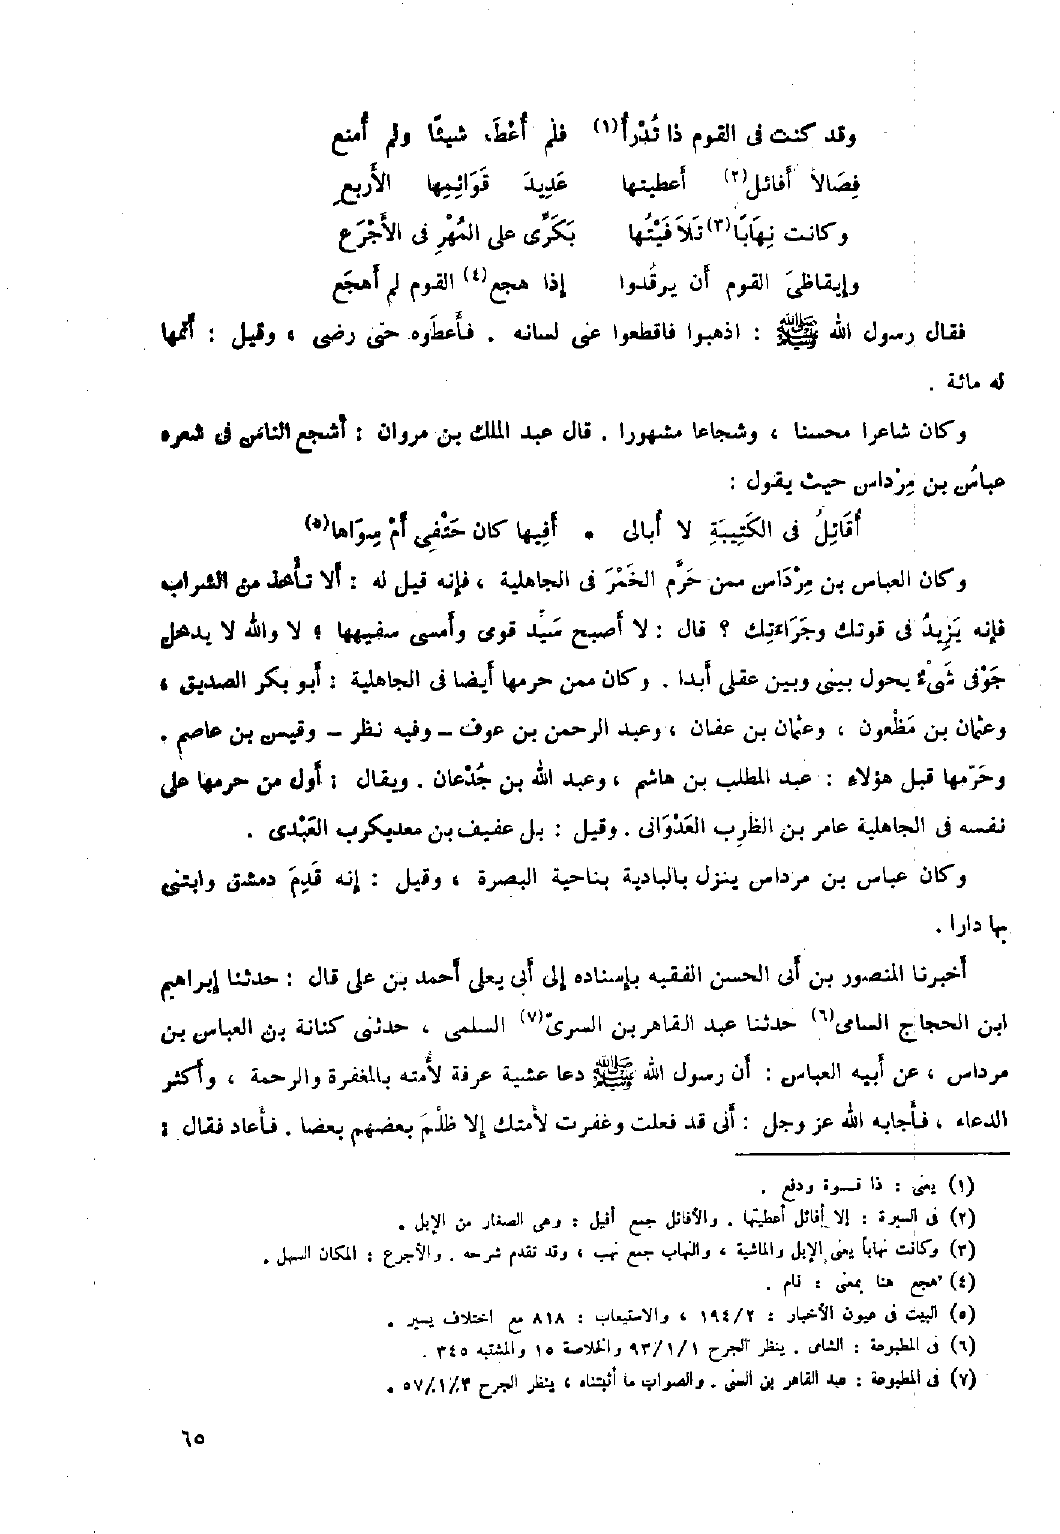 وقد كنت فى القوم ذا تُدْرأ(١) فلم أُعْطَ، شيئًا ولم أُمنع
فِصَالاً أفائل(٢) أعطيتها عَدِيدَ قَوَائِمِها الأَربعِ
وكانت نِهَابًا(٣) تَلاَفَيْتُها بَكَرِّى على المُهْرِ فى الأَجْرَع
وإيقاظىَ القوم أن يرقُدوا إذا هجع(٤) القوم لم أهجَع
فقال رسول الله ﷺ : اذهبوا فاقطعوا عنى لسانه . فأَعطَوه حتى رضى ، وقيل : أتمها
له مائة .
وكان شاعرا محسنا ، وشجاعا مشهورا . قال عبد الملك بن مروان : أشجع الناس فى شعره
عباسُ بن مِرْداس حيث يقول :
أُقَاتِلُ فى الكَتِيبَةِ لا أبالى * أفِيها كان حَتْفِى أمْ سِوَاها(٥)
وكان العباس بن مِرْدَاس ممن حَرَّم الخَمْرَ فى الجاهلية ، فإنه قيل له : ألا تأْخذ من الشراب
فإنه يَزِيدُ فى قوتك وجَرَاءتِك ؟ قال : لا أصبح سَيِّد قومى وأمسى سفيهها ؛ لا والله لا يدخل
جَوْفى شَىْءٌ يحول بينى وبين عقلى أبدا . وكان ممن حرمها أيضا فى الجاهلية : أبو بكر الصديق ،
وعثمان بن مَظْعون ، وعثمان بن عفان ، وعبد الرحمن بن عوف – وفيه نظر – وقيس بن عاصم .
وحَرّمها قبل هؤلاء : عبد المطلب بن هاشم ، وعبد الله بن جُدْعان . ويقال : أول من حرمها على
نفسه فى الجاهلية عامر بن الظرِب العَدْوَانى . وقيل : بل عفيف بن معديكرب العَبْدى .
وكان عباس بن مرداس ينزل بالبادية بناحية البصرة ، وقيل : إنه قَدِمَ دمشق وابتنى
بها دارا .
أخبرنا المنصور بن أبى الحسن الفقيه بإسناده إلى أبى يعلى أحمد بن على قال : حدثنا إبراهيم
ابن الحجاج السامى(٦) حدثنا عبد القاهر بن السرىّ(٧) السلمى ، حدثنى كنانة بن العباس بن
مرداس ، عن أبيه العباس : أن رسول الله ﷺ دعا عشية عرفة لأُمته بالمغفرة والرحمة ، وأكثر
الدعاء ، فأجابه الله عز وجل : أنى قد فعلت وغفرت لأمتك إلا ظلْمَ بعضهم بعضا . فأعاد فقال :
(١) يعنى : ذا قوة ودفع .
(٢) فى السيرة : إلا أفائل أعطيتها . والأفائل جمع أفيل : وهى الصغار من الإبل .
(٣) وكانت نهاباً يعنى الإبل والماشية ، والنهاب جمع نهب ، وقد تقدم شرحه . والأجرع : المكان السهل .
(٤) هجع هنا بمعنى : نام .
(٥) البيت فى عيون الأخبار : ٢/١٩٤ ، والاستيعاب : ٨١٨ مع اختلاف يسير .
(٦) فى المطبوعة : الشامى . ينظر الجرح ١/١/٩٣ والخلاصة ١٥ والمشتبه ٣٤٥ .
(٧) فى المطبوعة : عبد القاهر بن السنى . والصواب ما أثبتناه ، ينظر الجرح ٣/١/٥٧ .
٦٥